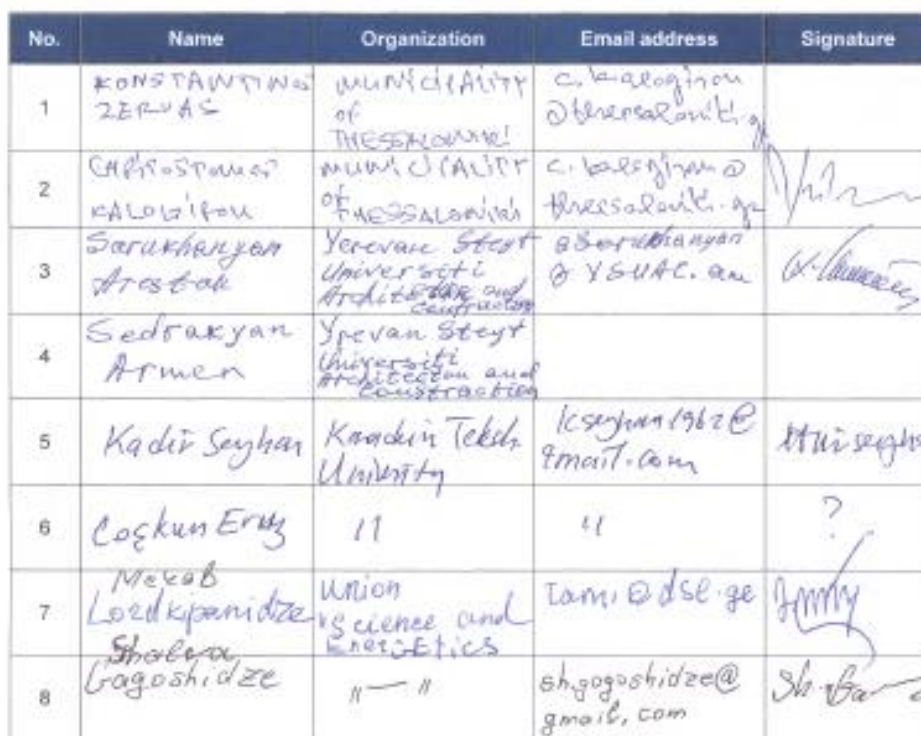 No. Name Organization Email address Signature
1
KONSTANTINOS
ZERVAS
MUNICIPALITY
of
THESSALONIKI
c.kalogirou
@thessaloniki.gr
2
KALOGIROU
MUNICIPALITY
of
THESSALONIKI
c.kalogirou@
thessaloniki.gr
3
Sarukhanyan
Arestak
Yerevan Steyt
Universiti
and
@ YSUAC.am
4
Sedrakyan
Armen
Yrevan Steyt
Universiti
and
Constraction
5
Kadir Seyhan
kseyhan1962@
gmail.com
6
Coşkun Eruz
"
"
?
7
Merab
Lordkipanidze
Union
Science and
Energetics
tami@dsl.ge
8
Shalva
Gagoshidze
"—"
sh.gagoshidze@
gmail.com